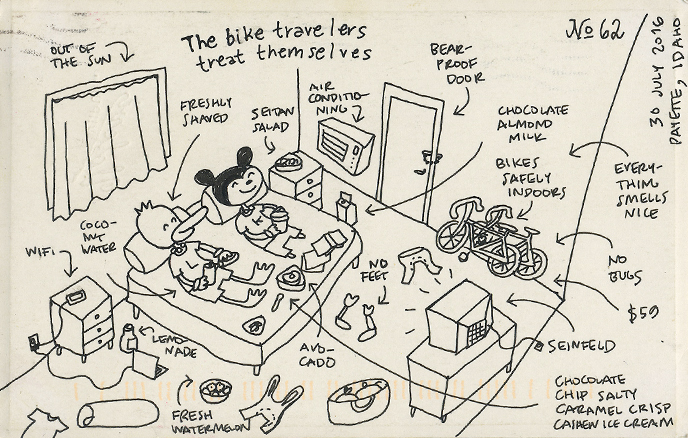 The bike travelers
treat themselves
No 62
30 JULY 2016
PAYETTE, IDAHO
OUT OF
THE SUN
FRESHLY
SHAVED
SEITAN
SALAD
AIR
CONDITIO-
NING
BEAR-
PROOF
DOOR
CHOCOLATE
ALMOND
MILK
BIKES
SAFELY
INDOORS
EVERY-
THING
SMELLS
NICE
COCO-
NUT
WATER
WIFI
NO
FEET
NO
BUGS
$59
LEMO-
NADE
AVO-
CADO
SEINFELD
FRESH
WATERMELON
CHOCOLATE
CHIP SALTY
CARAMEL CRISP
CASHEW ICE CREAM